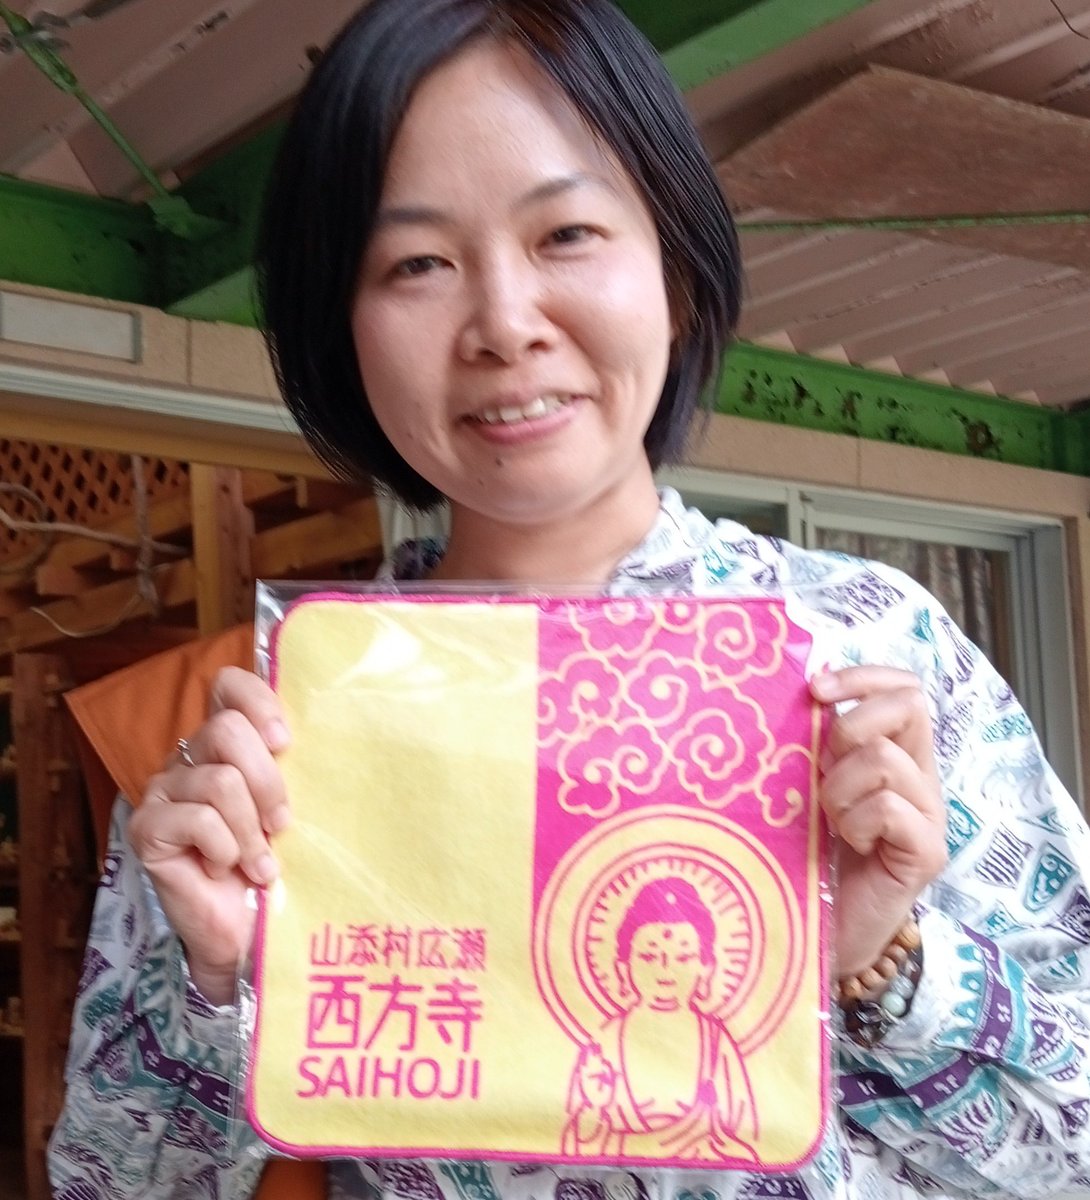 山添村広瀬
西方寺
SAIHOJI